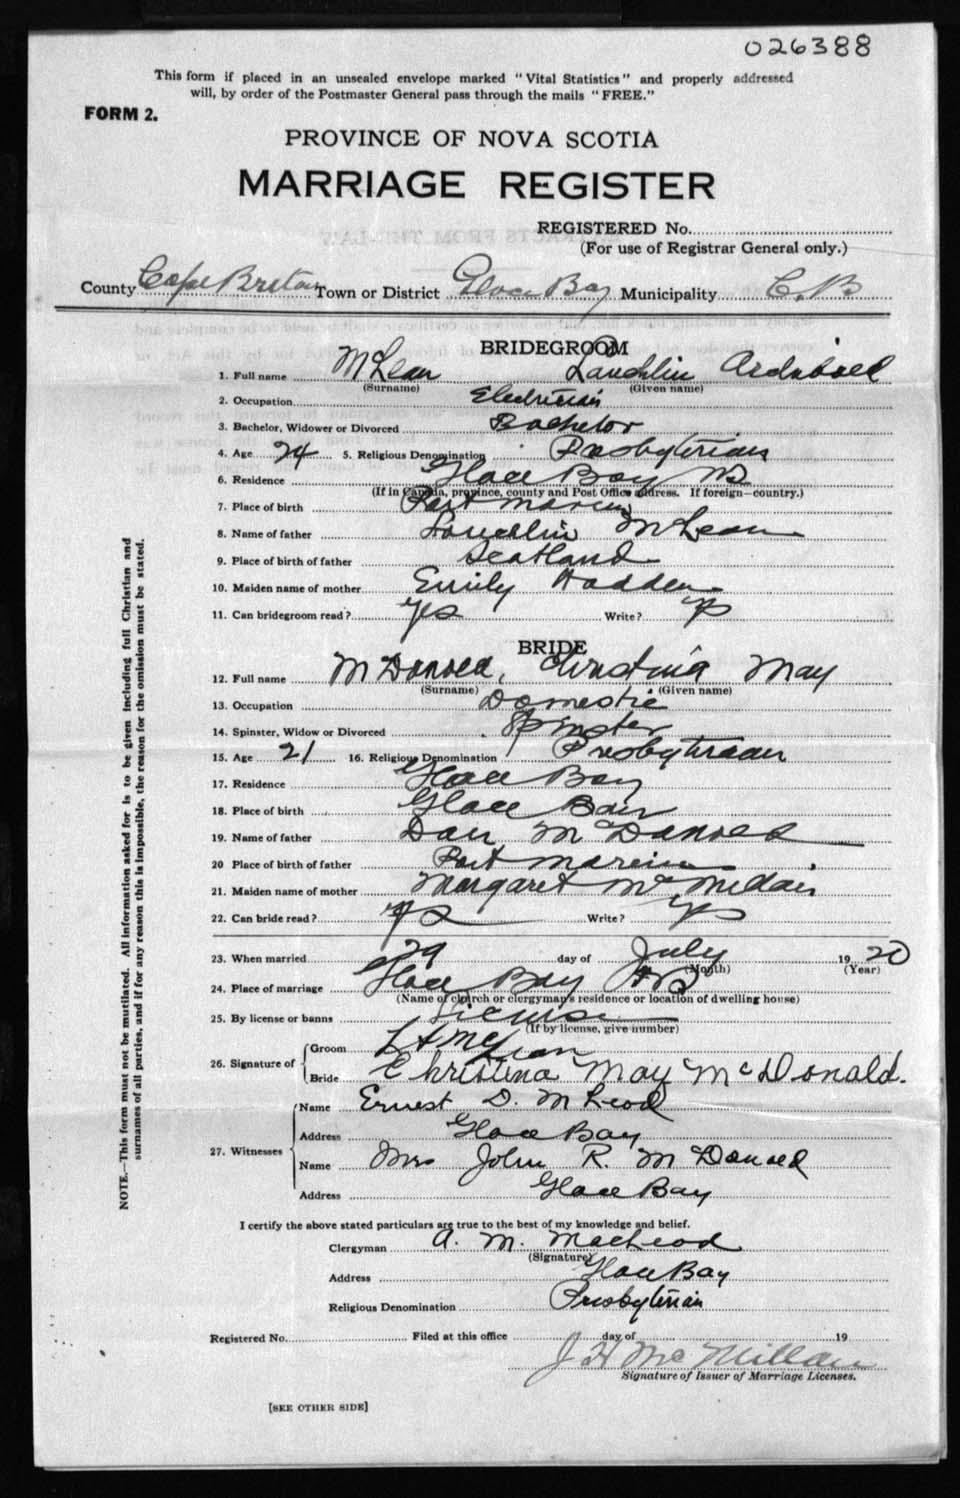 026388
This form if placed in an unsealed envelope marked "Vital Statistics" and properly addressed
will, by order of the Postmaster General pass through the mails "FREE."
FORM 2.
PROVINCE OF NOVA SCOTIA
MARRIAGE REGISTER
REGISTERED No.
(For use of Registrar General only.)
County Cape Breton Town or District Glace Bay Municipality C. B
BRIDEGROOM
1. Full name McLean Lauchlin Archibald
(Surname) (Given name)
2. Occupation Electrician
3. Bachelor, Widower or Divorced Bachelor
4. Age 24 5. Religious Denomination Presbyterian
6. Residence Glace Bay NS
(If in Canada, province, county and Post Office address. If foreign—country.)
7. Place of birth Port Morien
8. Name of father Lauchlin McLean
9. Place of birth of father Scotland
10. Maiden name of mother Emily Hadden
11. Can bridegroom read? yes Write? yes
BRIDE
12. Full name McDonald, Christina May
(Surname) (Given name)
13. Occupation Domestic
14. Spinster, Widow or Divorced Spinster
15. Age 21 16. Religious Denomination Presbyterian
17. Residence Glace Bay
18. Place of birth Glace Bay
19. Name of father Dan McDonald
20 Place of birth of father Port Morien
21. Maiden name of mother Margaret McMillan
22. Can bride read? yes Write? yes
23. When married 29 day of July 1920
(Month) (Year)
24. Place of marriage Glace Bay NS
(Name of church or clergyman's residence or location of dwelling house)
25. By license or banns License
(If by license, give number)
26. Signature of Groom L A McLean
Bride Christina May McDonald.
27. Witnesses
Name Ernest D. McLeod
Address Glace Bay
Name Mrs John R. McDonald
Address Glace Bay
I certify the above stated particulars are true to the best of my knowledge and belief.
Clergyman A. M. MacLeod
(Signature)
Address Glace Bay
Religious Denomination Presbyterian
Registered No. Filed at this office day of 19
J H McMillan
Signature of Issuer of Marriage Licenses.
[SEE OTHER SIDE]
NOTE.—This form must not be mutilated. All information asked for is to be given including full Christian and
surnames of all parties, and if for any reason this is impossible, the reason for the omission must be stated.